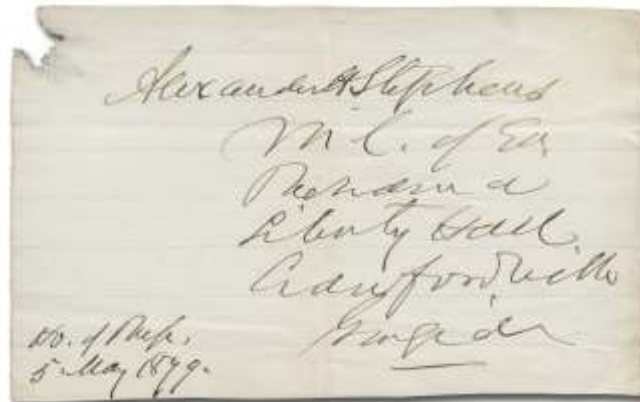 Alexander H Stephens
M. C. of Ga
Liberty Hall.
Crawfordville
Georgia
Ho. of Reps.
5 May 1879.